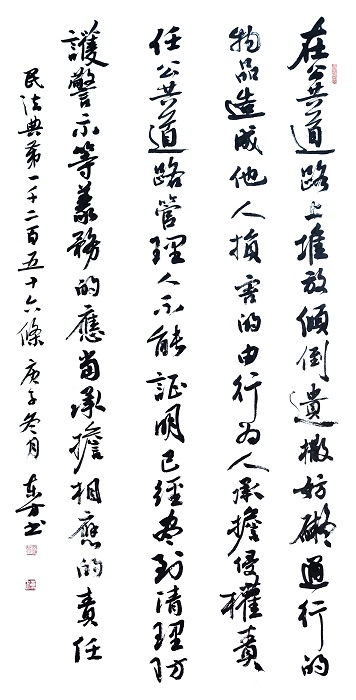 在公共道路上堆放傾倒遺撒妨礙通行的
物品造成他人損害的由行为人承擔侵權責
任公共道路管理人不能証明已經盡到清理防
護警示等義務的應當承擔相應的責任
民法典第一千二百五十六條 庚子冬月 東方书